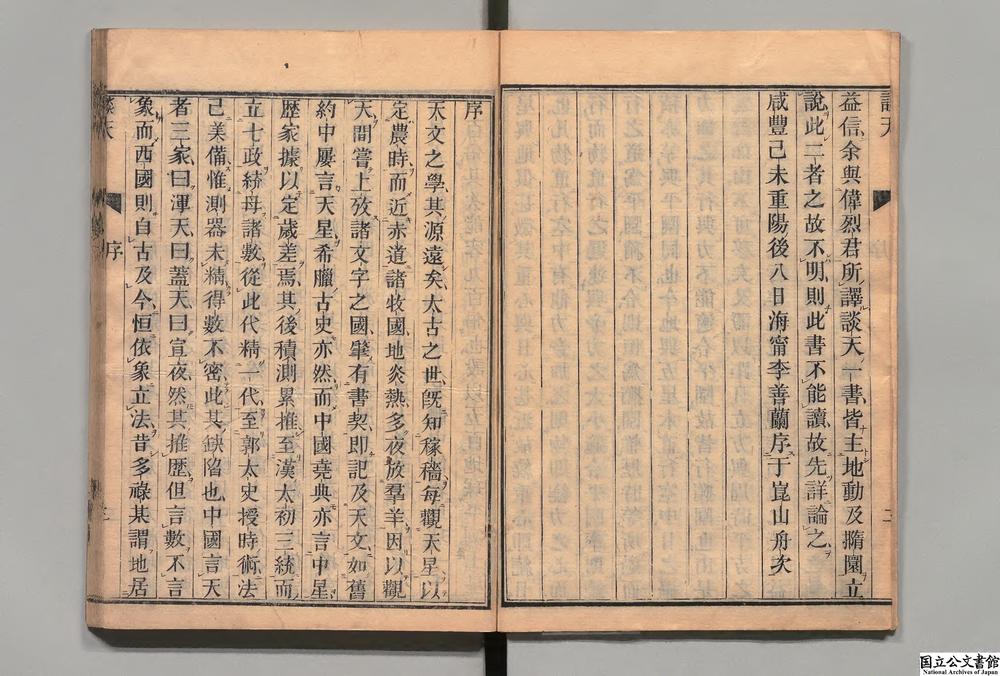 談天
二
益信余與偉烈君所譯談天一書皆主地動及撱圜立
說此二者之故不明則此書不能讀故先詳論之
咸豐己未重陽後八日海甯李善蘭序于崑山舟次
序
天文之學其源遠矣太古之世旣知稼穡每觀天星以
定農時而近赤道諸牧國地炎熱多夜放羣羊因以觀
天間嘗上攷諸文字之國肇有書契卽記及天文如舊
約中屢言天星希臘古史亦然而中國堯典亦言中星
歷家據以定歲差焉其後積測累推至漢太初三統而
立七政統母諸數從此代精一代至郭太史授時術法
己美備惟測器未精得數不密此其缺陷也中國言天
者三家曰渾天曰蓋天曰宣夜然其推歷但言數不言
象而西國則自古及今恒依象立法昔多祿某謂地居
談天
序
三
国立公文書館
National Archives of Japan